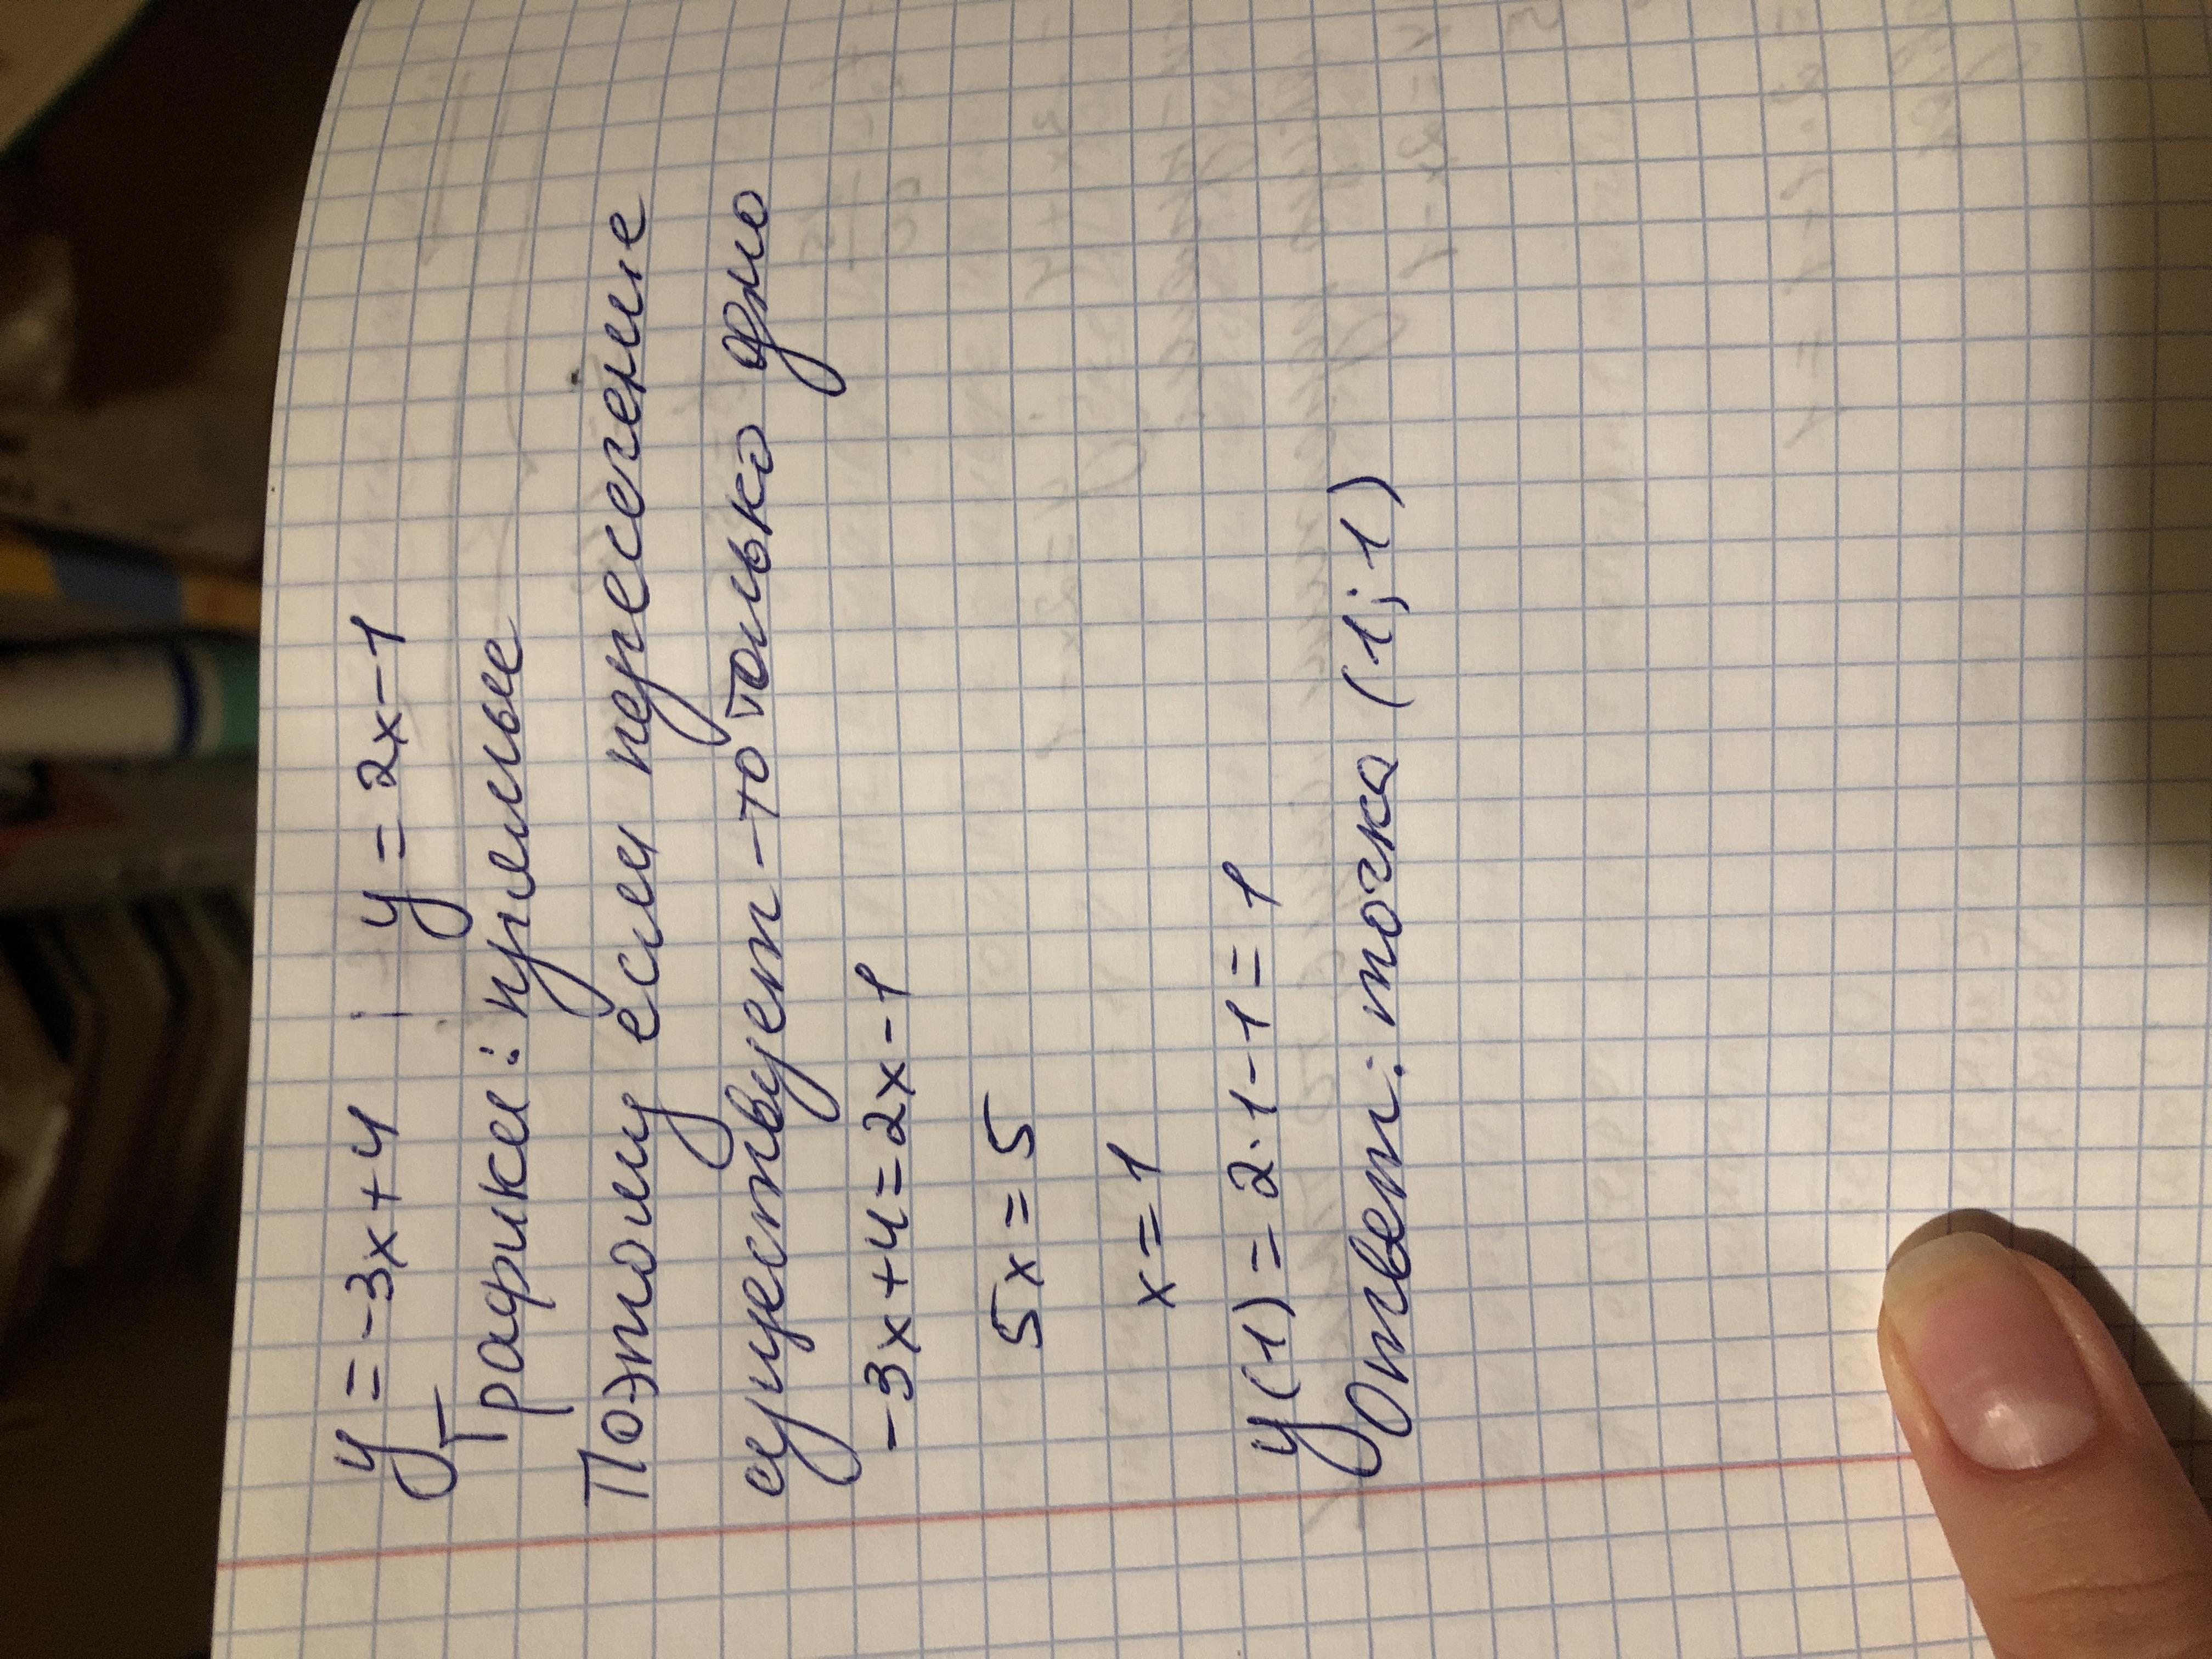 y = -3x+4 ; y = 2x-1
Графики: прямые
Поэтому если пересечение
существует - то только одно
-3x+4=2x-1
5x=5
x=1
y(1)=2·1-1=1
Ответ: точка (1;1)